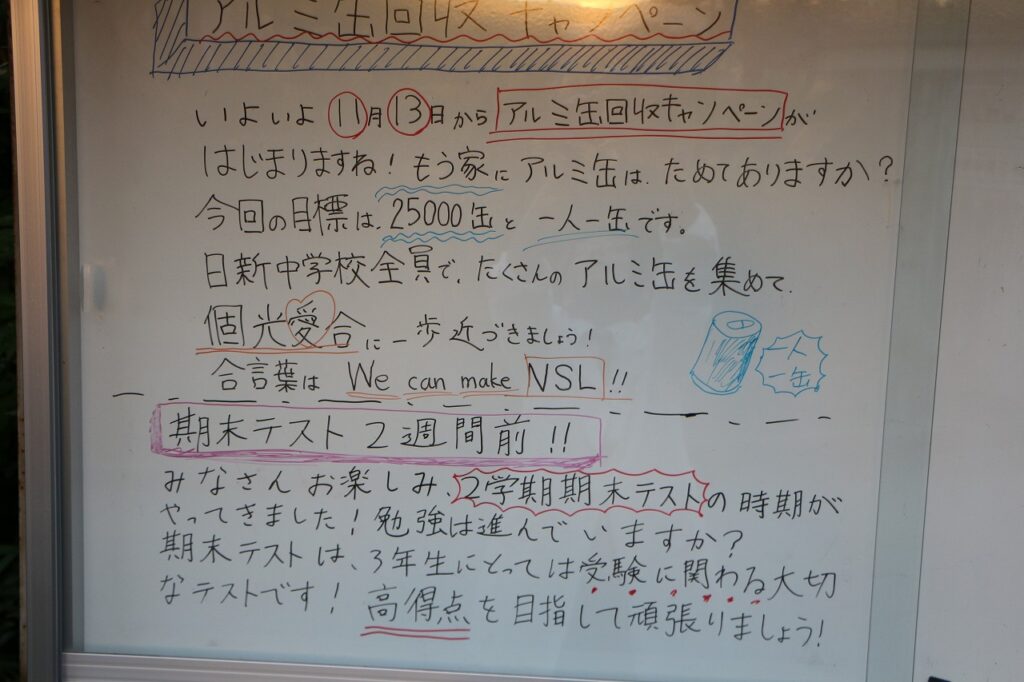 アルミ缶回収キャンペーン
いよいよ11月13日からアルミ缶回収キャンペーンが
はじまりますね！もう家にアルミ缶は、ためてありますか？
今回の目標は、25000缶と一人一缶です。
日新中学校全員で、たくさんのアルミ缶を集めて、
個光愛合に一歩近づきましょう！
合言葉は We can make NSL!!
一人
一缶
期末テスト2週間前!!
みなさんお楽しみ、2学期期末テストの時期が
やってきました！勉強は進んでいますか？
期末テストは、3年生にとっては受験に関わる大切
なテストです！高得点を目指して頑張りましょう！